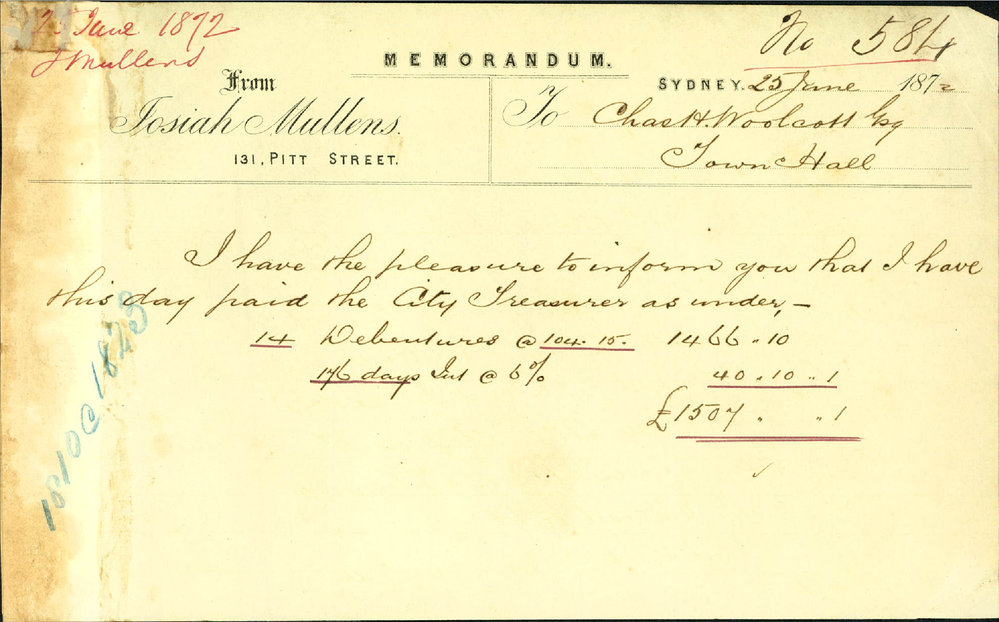 June 1872
J Mullens
No 584
MEMORANDUM.
From
Josiah Mullens.
131, PITT STREET.
SYDNEY. 25 June 1872
To Chas H. Woolcott Esq
Town Hall
I have the pleasure to inform you that I have
this day paid the City Treasurer as under, —
14 Debentures @ 104. 15. 1466 " 10
176 days Int @ 6% 40 " 10 " 1
£1507 " " 1
1810 @ 1823